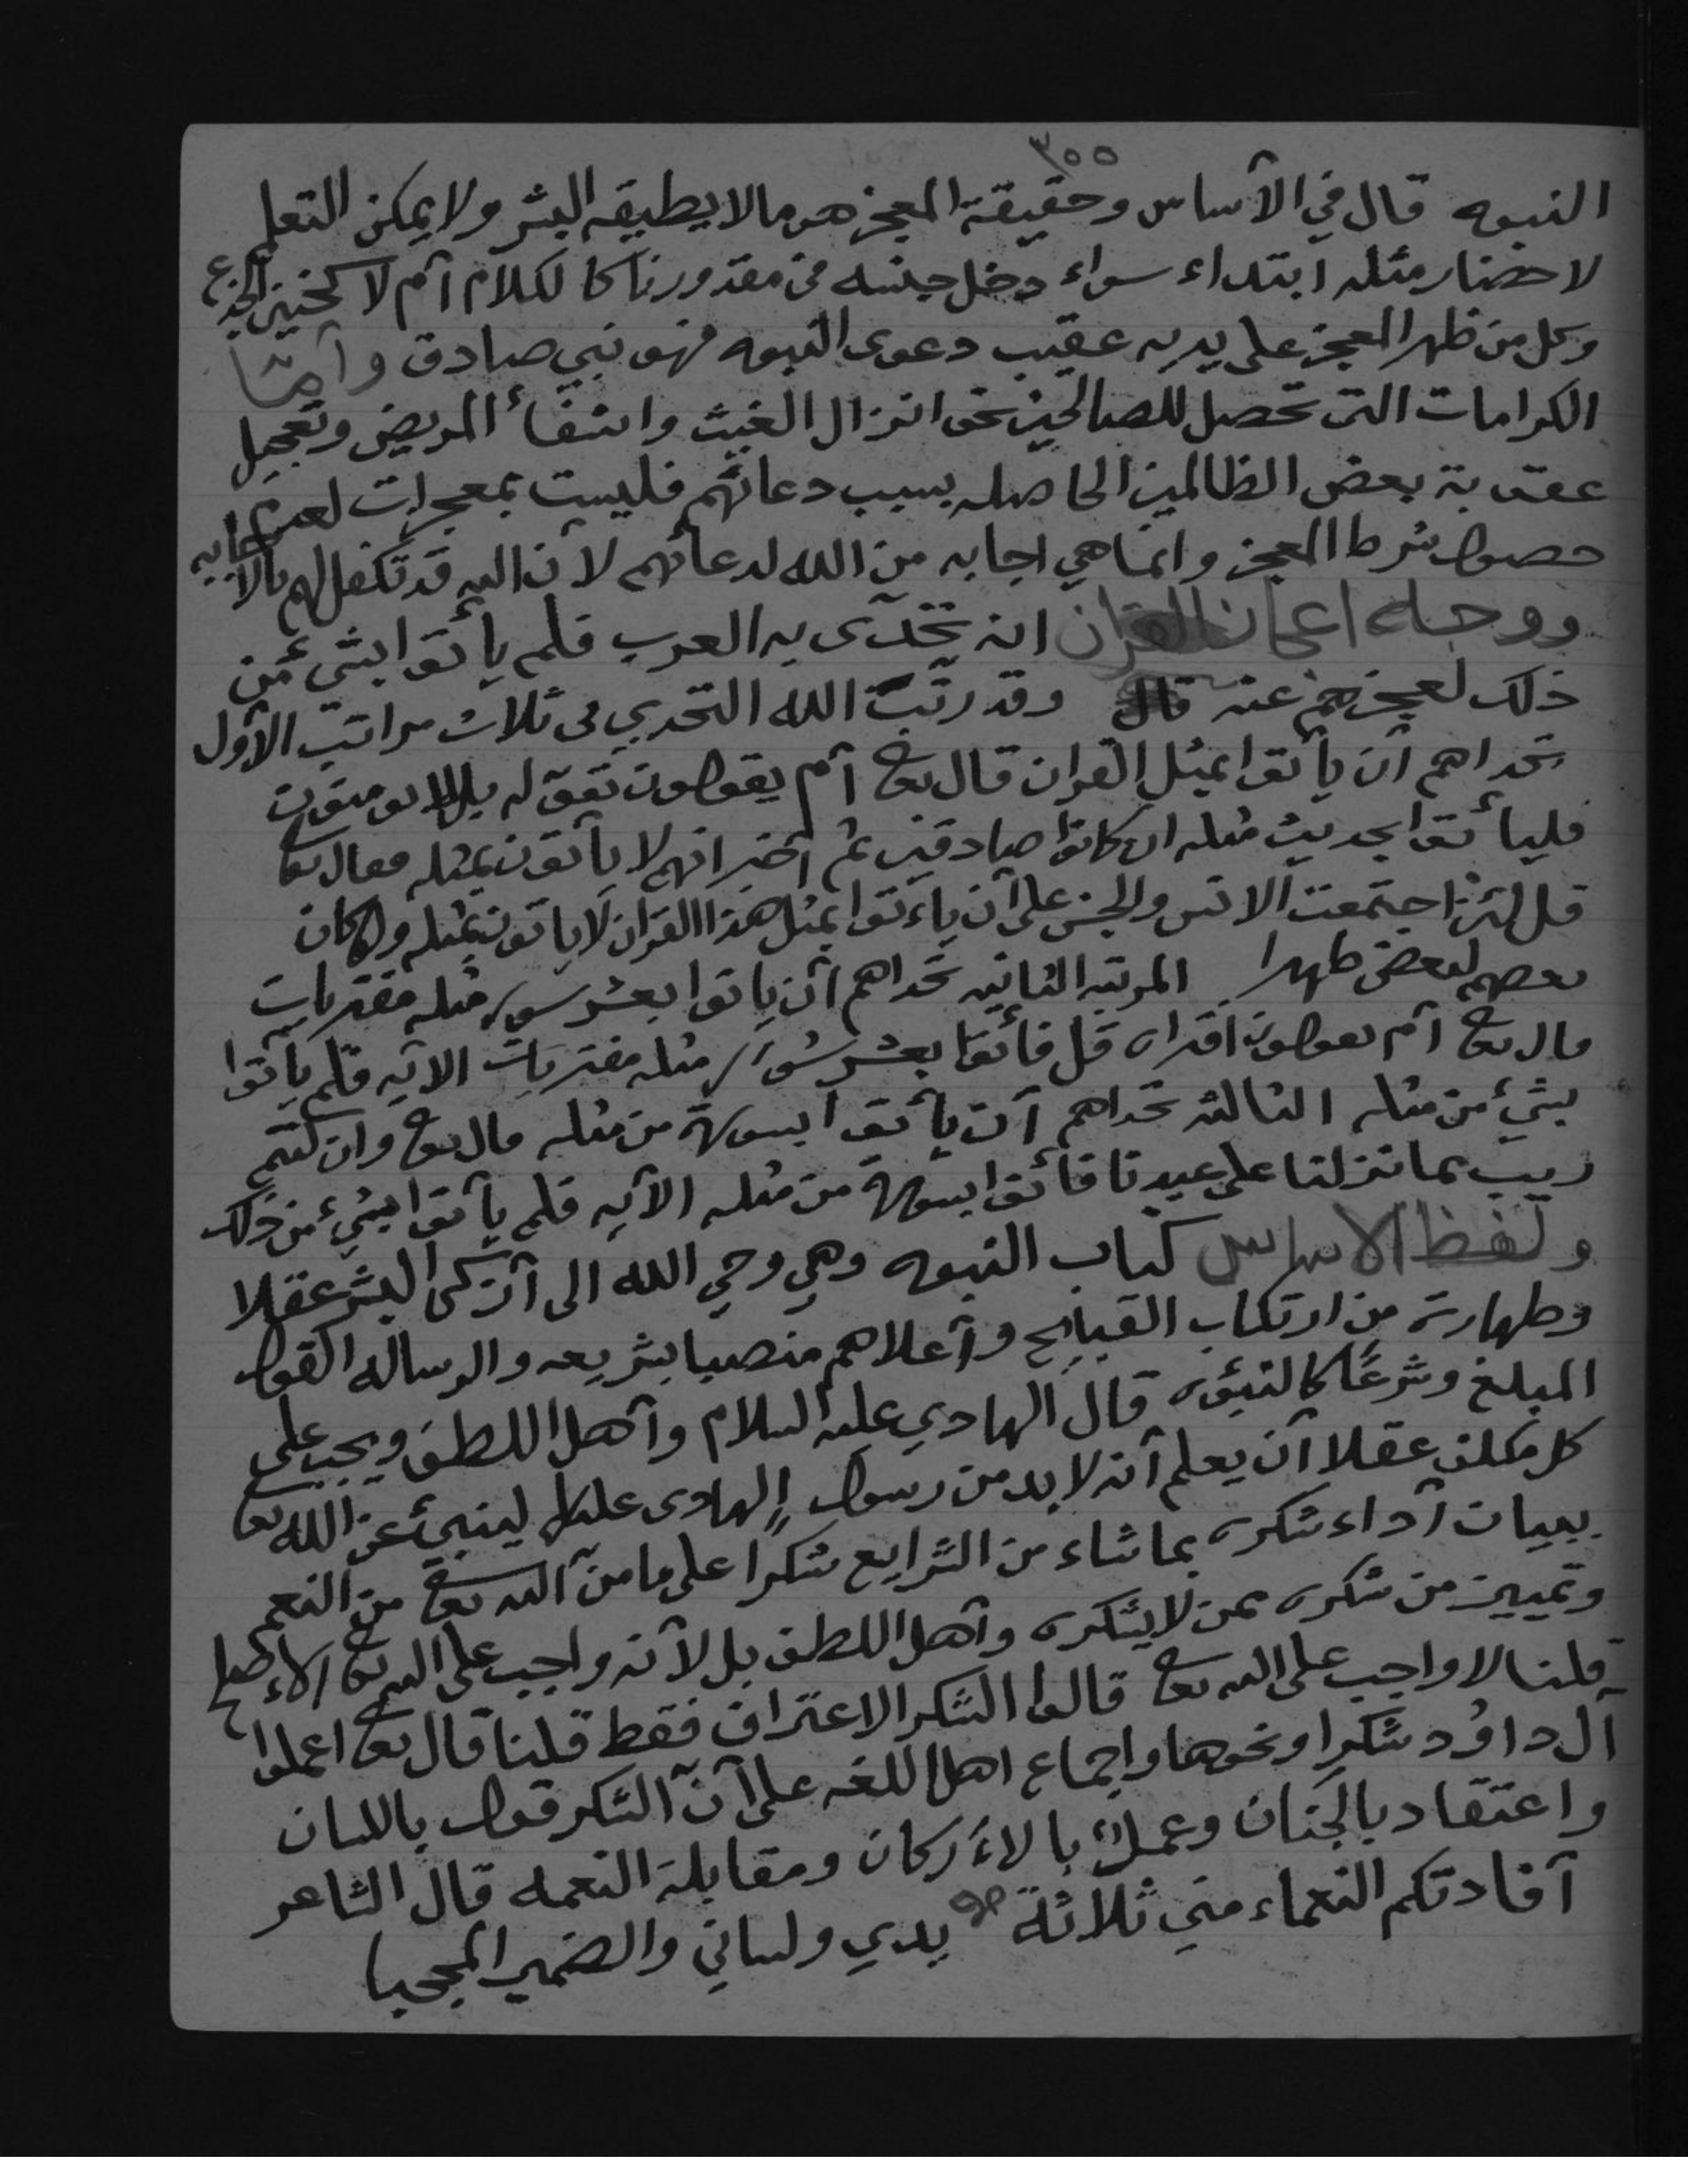 ٣٥٥
النبوه قال في الأساس وحقيقة المعجز هو مالا يطيقه البشر ولا يمكن التعلم
لاحضار مثله ابتداء سواء دخل جنسه في مقدورنا كالكلام أم لا كحنين الجذع
وكل من ظهر المعجز على يديه عقيب دعوى النبوه فهو نبي صادق وأما
الكرامات التي تحصل للصالحين نحو انزال الغيث واشفاء المريض وتعجيل
عقوبة بعض الظالمين الحاصله بسبب دعائهم فليست بمعجزات لعدم
حصول شرط المعجز وانما هي اجابه من الله لدعائهم لأن الله قد تكفل لهم بالاجابه
ووجه اعجاز القران انه تحدى به العرب فلم يأتوا بشيء من
ذلك لعجزهم عنه قال وقد رتب الله التحدي في ثلاث مراتب الأول
تحداهم أن يأتوا بمثل القران قال تعا أم يقولون تقوله بل لا يومنون
فليأتوا بحديث مثله ان كانوا صادقين ثم أخبر انهم لا يأتون بمثله فقال تعا
قل لئن اجتمعت الانس والجن على أن يأتوا بمثل هذا القران لا ياتون بمثله ولو كان
بعضهم لبعض ظهيرا المرتبه الثانيه تحداهم أن ياتوا بعشر سور مثله مفتريات
قال تعا أم يقولون افتراه قل فأتوا بعشر سور مثله مفتريات الايه فلم يأتوا
بشيء من مثله الثالثه تحداهم أن يأتوا بسورة من مثله قال تعا وان كنتم
ريب مما نزلنا على عبدنا فأتوا بسورة من مثله الآيه فلم يأتوا بشيء من ذلك
ولفظ الاساس كتاب النبوه وهي وحي الله الى أزكى البشر عقلا
وطهارة من ارتكاب القبايح وأعلاهم منصبا بشريعه والرساله القول
المبلغ وشرعًا كالنبوه قال الهادي عليه السلام وأهل اللطف ويجب على
كل مكلف عقلا أن يعلم أنه لا بد من رسول الهادى علسلم لينبئ عن الله تعا
ببيان أداء شكره بما شاء من الشرايع شكرا على ما منّ الله تعا من النعم
وتمييز من شكره ممن لا يشكره وأهل اللطف بل لأنه واجب على الله تعا الاصلح
قلنا لا واجب على الله تعا قالوا الشكر الاعتراف فقط قلنا قال تعا اعملوا
آل داوُد شكرا ونحوها واجماع اهل اللغه على أنّ الشكر قول باللسان
واعتقاد بالجنان وعمل بالاركان ومقابلة النعمه قال الشاعر
أفادتكم النعماء مني ثلاثة يدي ولساني والضمير المحجبا